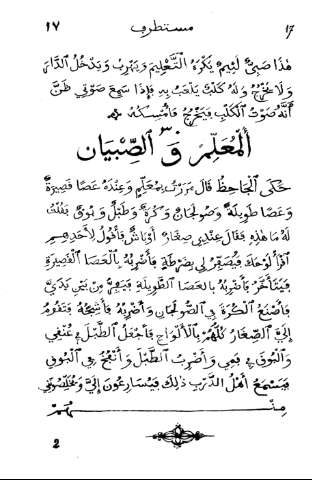 ١٧ مستطرف ١٧
هٰذَا صَبِيٌّ لَئِيمٌ يَكْرَهُ التَّعْلِيمَ وَيَهْرُبُ وَيَدْخُلُ الدَّارَ
وَلَا يَخْرُجُ وَلَهُ كَلْبٌ يَلْعَبُ بِهِ فَإِذَا سَمِعَ صَوْتِي ظَنَّ
أَنَّهُ صَوْتُ الْكَلْبِ فَيَخْرُجُ فَأُمْسِكُهُ
اَلْمُعَلِّمُ وَ الصِّبْيَانُ
حَكَى الْجَاحِظُ قَالَ مَرَرْتُ بِمُعَلِّمٍ وَعِنْدَهُ عَصًا قَصِيرَةٌ
وَعَصًا طَوِيلَةٌ وَصَوْلَجَانٌ وَكُرَةٌ وَطَبْلٌ وَبُوقٌ فَقُلْتُ
لَهُ مَا هٰذِهِ فَقَالَ عِنْدِي صِغَارٌ أَوْبَاشٌ فَأَقُولُ لِأَحَدِهِمْ
اقْرَأْ لَوْحَكَ فَيُصَفِّرُ لِي بِضَرْطَةٍ فَأَضْرِبُهُ بِالْعَصَا الْقَصِيرَةِ
فَيَتَأَخَّرُ فَأَضْرِبُهُ بِالْعَصَا الطَّوِيلَةِ فَيَفِرُّ مِنْ بَيْنِ يَدَيَّ
فَأَضَعُ الْكُرَةَ فِي الصَّوْلَجَانِ وَأَضْرِبُهُ فَأَشُجُّهُ فَتَقُومُ
إِلَيَّ الصِّغَارُ كُلُّهُمْ بِالْأَلْوَاحِ فَأَجْعَلُ الطَّبْلَ فِي عُنُقِي
وَالْبُوقَ فِي فَمِي وَأَضْرِبُ الطَّبْلَ وَأَنْفُخُ فِي الْبُوقِ
فَيَسْمَعُ أَهْلُ الدَّرْبِ ذٰلِكَ فَيُسَارِعُونَ إِلَيَّ وَيُخَلِّصُونِي
مِنْهُمْ
2